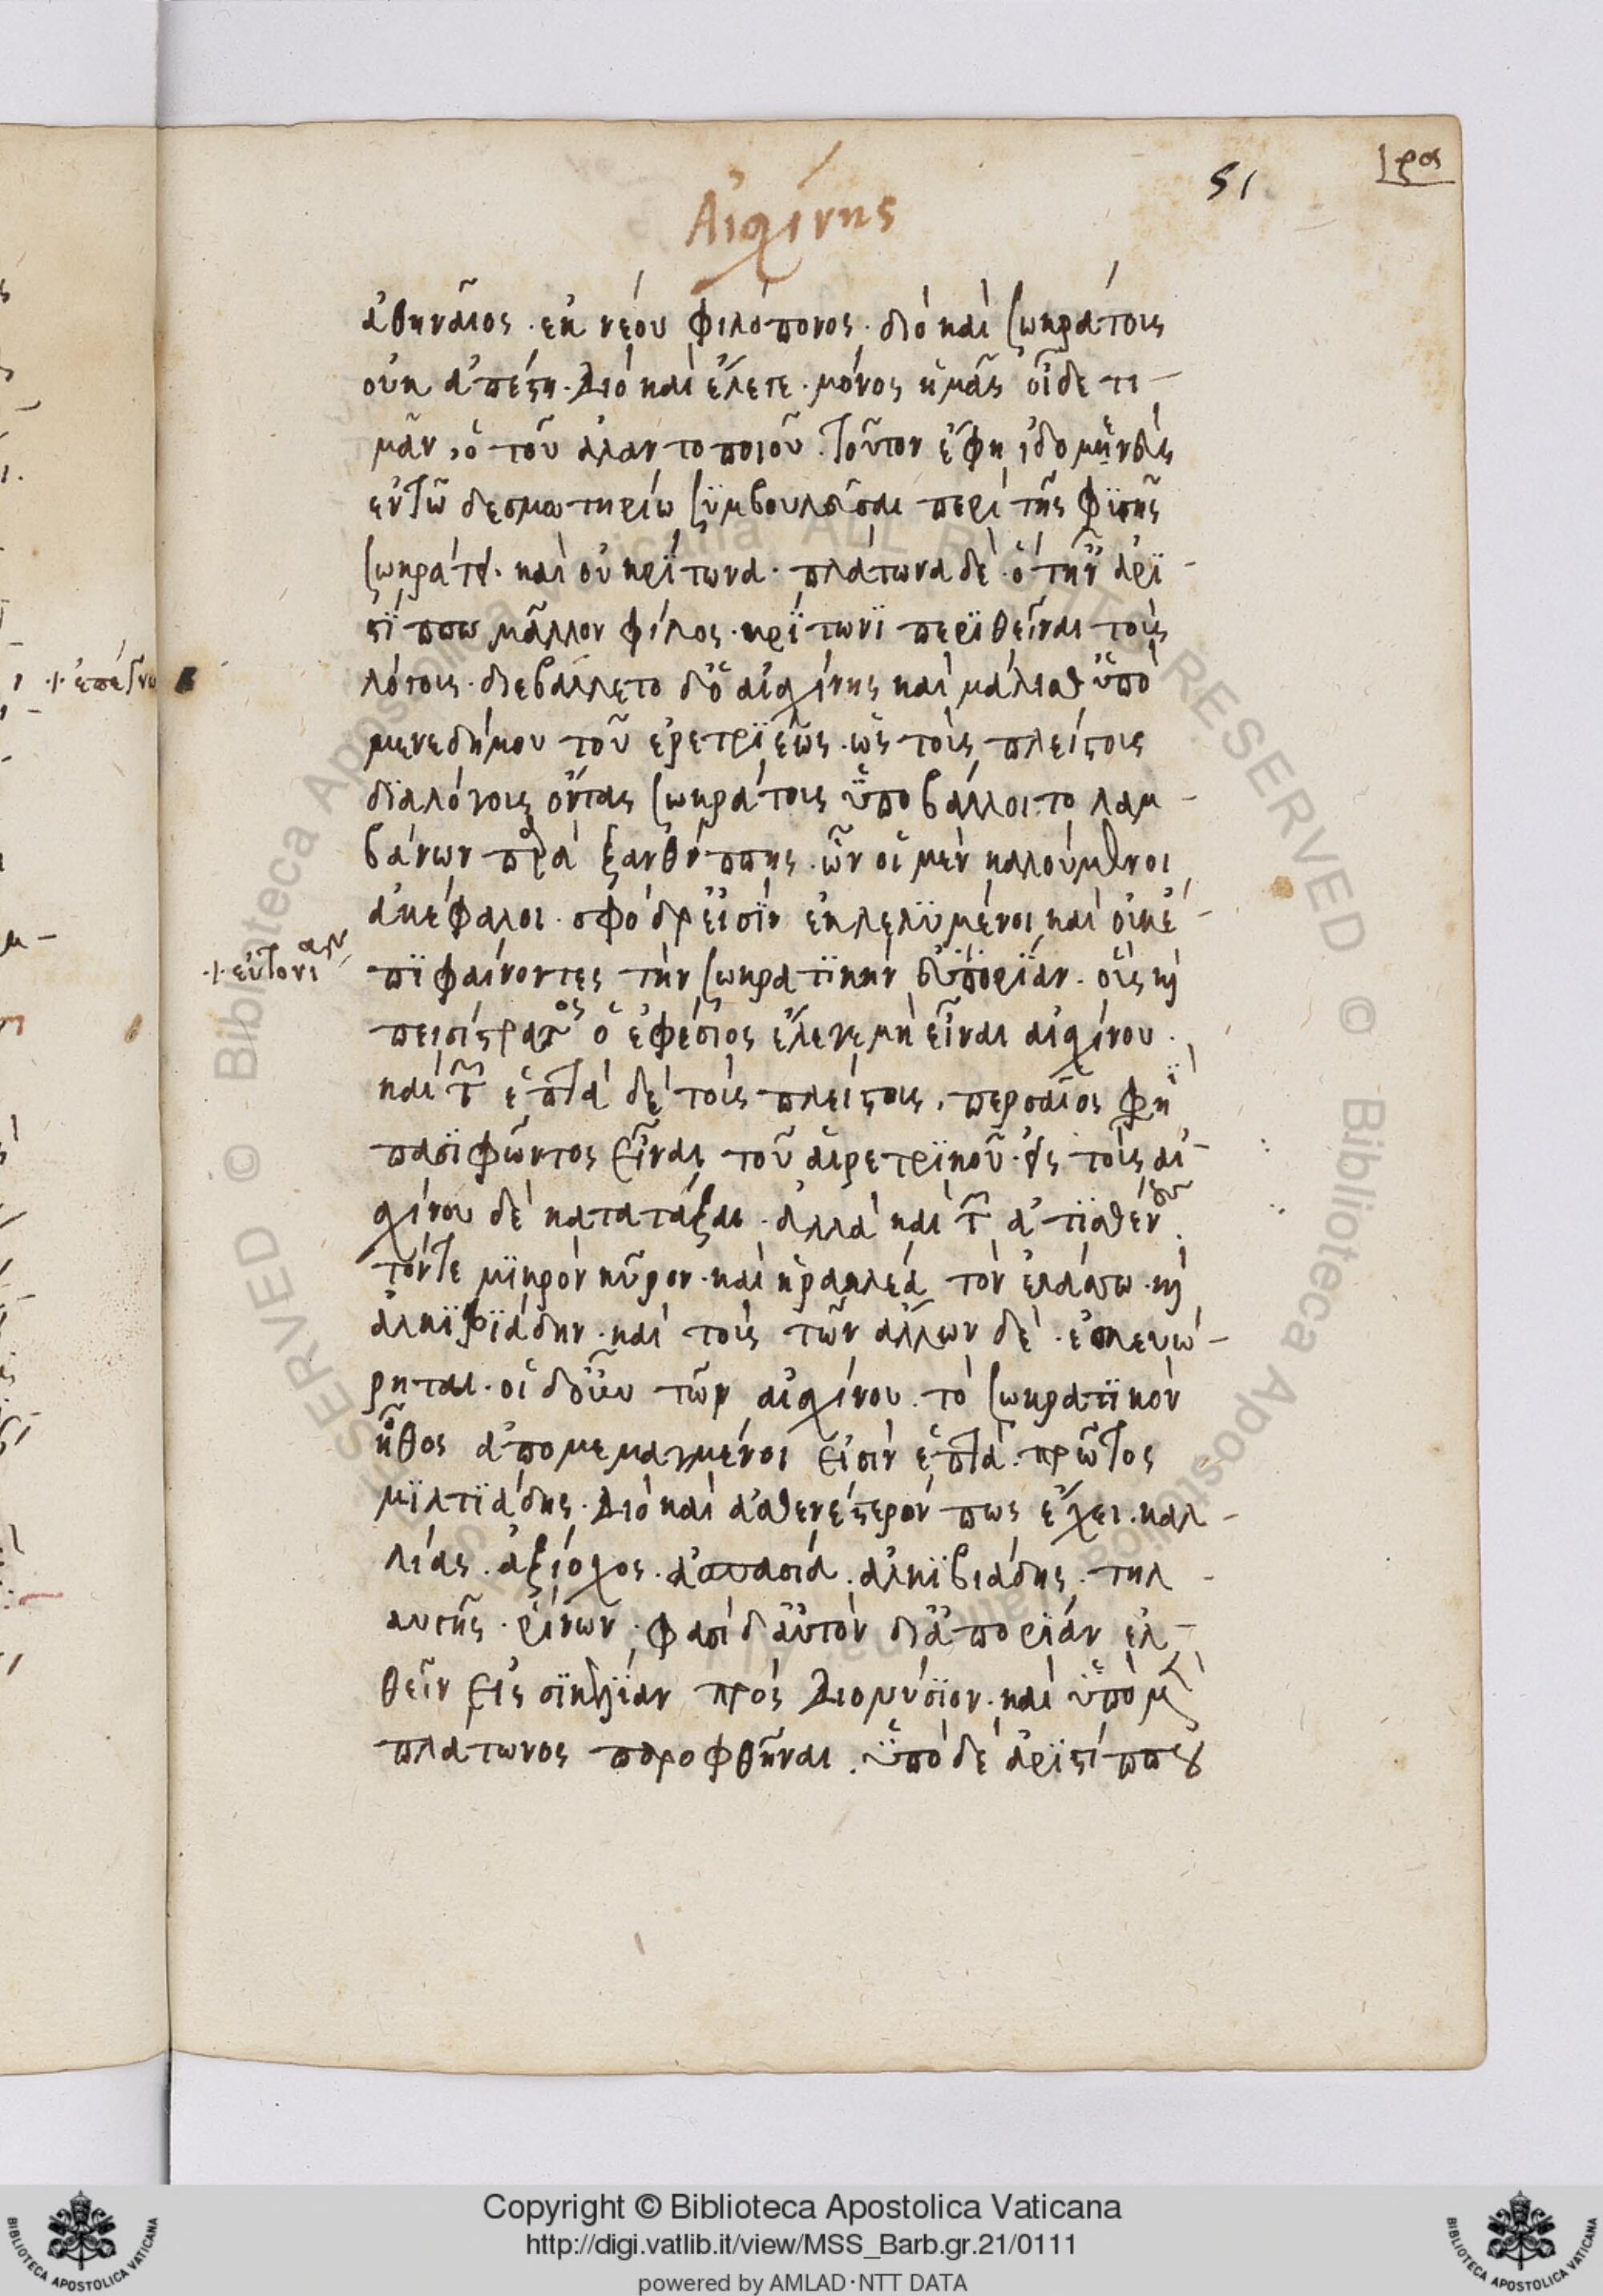 51
ρα
Αἰσχίνης
ἀθηναῖος · ἐκ νέου φιλόπονος · διὸ καὶ σωκράτους
οὐκ ἀπέστη · διὸ καὶ ἔλεγε · μόνος ἡμᾶς οἶδε τι-
μᾶν, ὁ τοῦ ἀλαντοποιοῦ · τοῦτον ἔφη ἰδομενεὺς
ἐν τῶ δεσμωτηρίω ξυμβουλεῦσαι περὶ τῆς φυγῆς
σωκράτει · καὶ οὐ κρίτωνα · πλάτωνα δὲ · ὅτι ἦν ἀρι-
στίππω μᾶλλον φίλος · κρίτωνι περιθεῖναι τοὺς
λόγους · διεβάλλετο δ' ὁ αἰσχίνης καὶ μάλισθ' ὑπὸ
μενεδήμου τοῦ ἐρετριέως · ὡς τοὺς πλείστους
διαλόγους ὄντας σωκράτους ὑποβάλλοιτο λαμ-
βάνων παρὰ ξανθίππης · ὧν οἱ μὲν καλούμενοι
ἀκέφαλοι · σφόδρ' εἰσὶν ἐκλελυμένοι καὶ οὐκ ἐ-
πιφαίνοντες τὴν σωκρατικὴν εὐπορίαν · οὓς καὶ
·/· εὐτονίαν
πεισίστρατος ὁ ἐφέσιος ἔλεγε μὴ εἶναι αἰσχίνου ·
καὶ τῶν ἑπτὰ δὲ τοὺς πλείστους · περσαῖος φησὶ
πασιφῶντος εἶναι τοῦ αἱρετρικοῦ · εἰς τοὺς αἰ-
σχίνου δὲ κατατάξαι · ἀλλὰ καὶ τῶν ἀντισθένους
τόν τε μικρὸν κῦρον · καὶ ἡρακλέα τὸν ἐλάσσω · καὶ
ἀλκιβιάδην · καὶ τοὺς τῶν ἄλλων δὲ · ἐσκευώ-
ρηται · οἱ δ' οὖν τῶν αἰσχίνου · τὸ σωκρατικὸν
ἦθος ἀπομεμαγμένοι εἰσὶν ἑπτὰ · πρῶτος
μιλτιάδης · διὸ καὶ ἀσθενέστερόν πως ἔχει · καλ-
λίας · ἀξίοχος · ἀσπασία · ἀλκιβιάδης · τηλ-
αυγῆς · ῥίνων · φασὶ δ' αὐτὸν δι' ἀπορίαν ἐλ-
θεῖν εἰς σικελίαν πρὸς διονύσιον · καὶ ὑπὸ μὲν
πλάτωνος παροφθῆναι · ὑπὸ δὲ ἀριστίππου
Copyright © Biblioteca Apostolica Vaticana
http://digi.vatlib.it/view/MSS_Barb.gr.21/0111
powered by AMLAD·NTT DATA
BIBLIOTECA APOSTOLICA VATICANA
BIBLIOTECA APOSTOLICA VATICANA